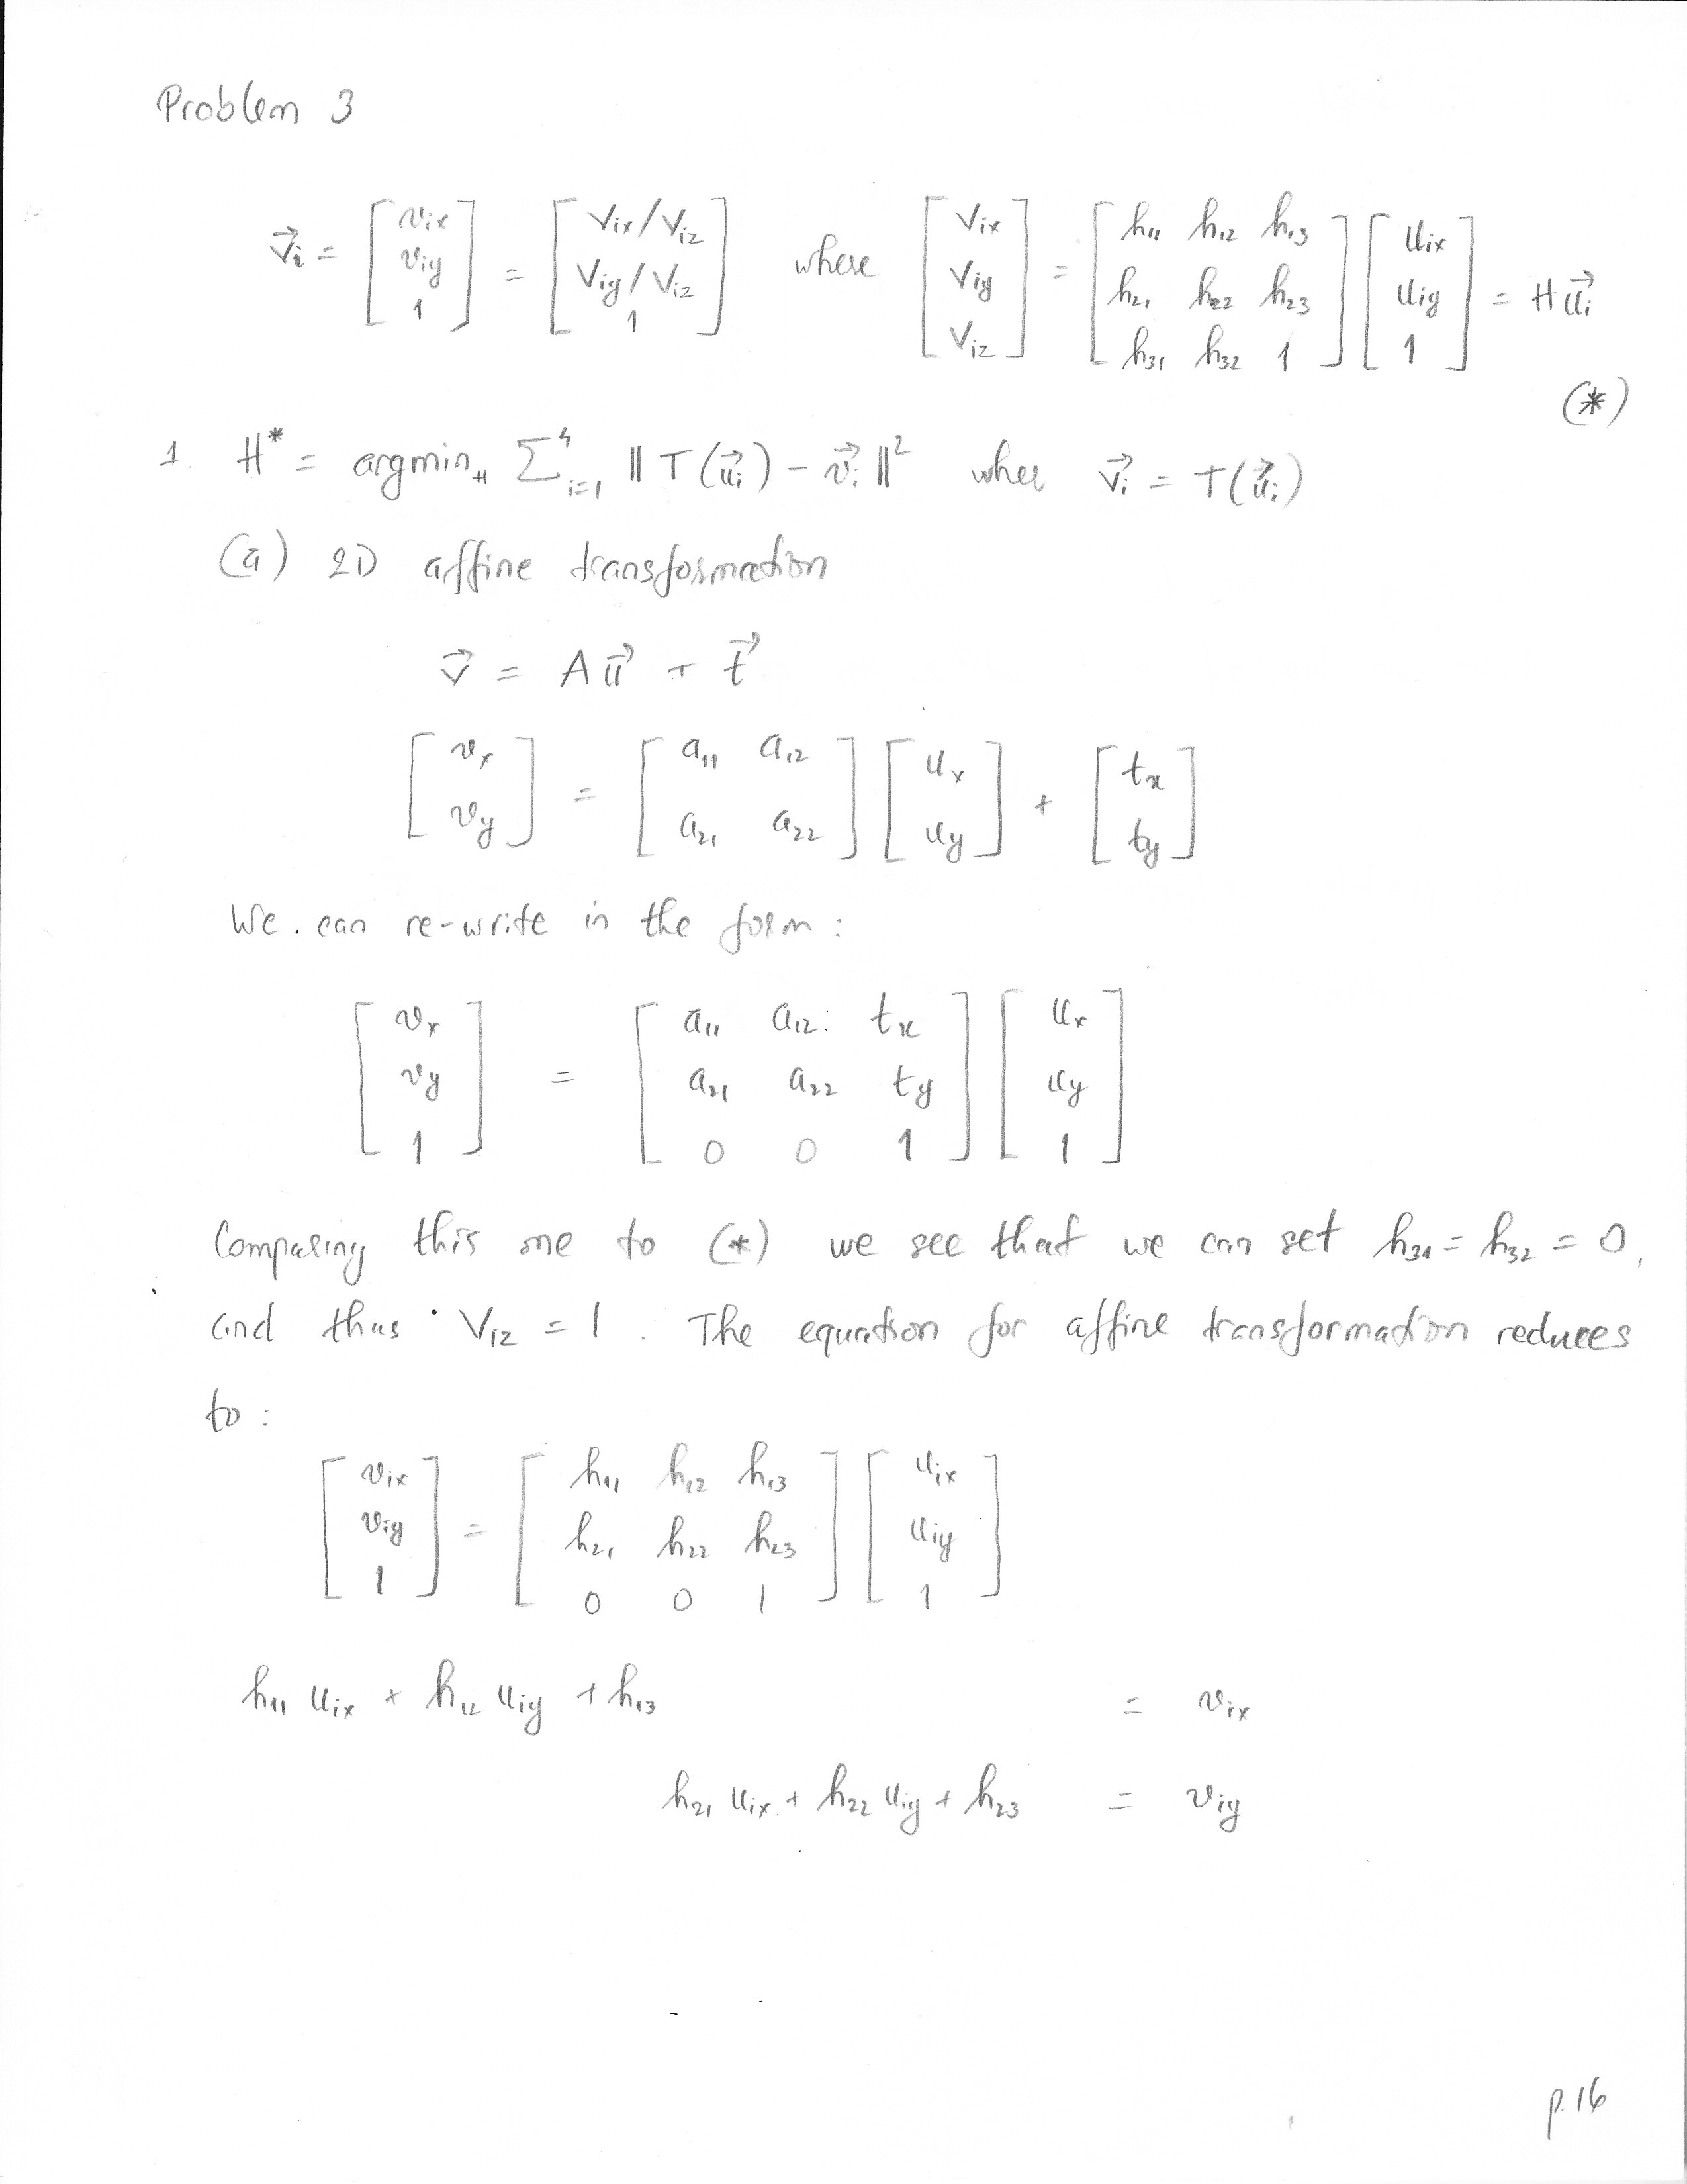 Problem 3
$\vec{v}_i = \begin{bmatrix} v_{ix} \\ v_{iy} \\ 1 \end{bmatrix} = \begin{bmatrix} V_{ix}/V_{iz} \\ V_{iy}/V_{iz} \\ 1 \end{bmatrix}$ where $\begin{bmatrix} V_{ix} \\ V_{iy} \\ V_{iz} \end{bmatrix} = \begin{bmatrix} h_{11} & h_{12} & h_{13} \\ h_{21} & h_{22} & h_{23} \\ h_{31} & h_{32} & 1 \end{bmatrix} \begin{bmatrix} u_{ix} \\ u_{iy} \\ 1 \end{bmatrix} = H\vec{u}_i$
(*)
1. $H^* = \text{argmin}_H \sum_{i=1}^{4} \| T(\vec{u}_i) - \vec{v}_i \|^2$ whee $\vec{v}_i = T(\vec{u}_i)$
(a) 2D affine transformation
$\vec{v} = A\vec{u} + \vec{t}$
$\begin{bmatrix} v_x \\ v_y \end{bmatrix} = \begin{bmatrix} a_{11} & a_{12} \\ a_{21} & a_{22} \end{bmatrix} \begin{bmatrix} u_x \\ u_y \end{bmatrix} + \begin{bmatrix} t_x \\ t_y \end{bmatrix}$
We can re-write in the form :
$\begin{bmatrix} v_x \\ v_y \\ 1 \end{bmatrix} = \begin{bmatrix} a_{11} & a_{12} & t_x \\ a_{21} & a_{22} & t_y \\ 0 & 0 & 1 \end{bmatrix} \begin{bmatrix} u_x \\ u_y \\ 1 \end{bmatrix}$
Comparing this one to (*) we see that we can set $h_{31} = h_{32} = 0$,
and thus $V_{iz} = 1$. The equation for affine transformation reduces
to :
$\begin{bmatrix} v_{ix} \\ v_{iy} \\ 1 \end{bmatrix} = \begin{bmatrix} h_{11} & h_{12} & h_{13} \\ h_{21} & h_{22} & h_{23} \\ 0 & 0 & 1 \end{bmatrix} \begin{bmatrix} u_{ix} \\ u_{iy} \\ 1 \end{bmatrix}$
$h_{11} u_{ix} + h_{12} u_{iy} + h_{13} = v_{ix}$
$h_{21} u_{ix} + h_{22} u_{iy} + h_{23} = v_{iy}$
p.16